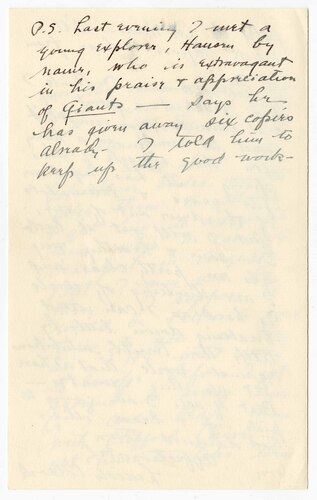 P.S. Last evening I met a
young explorer, Hansen by
name, who is extravagant
in his praise & appreciation
of Giants — Says he
has given away six copies
already. I told him to
keep up the good work-